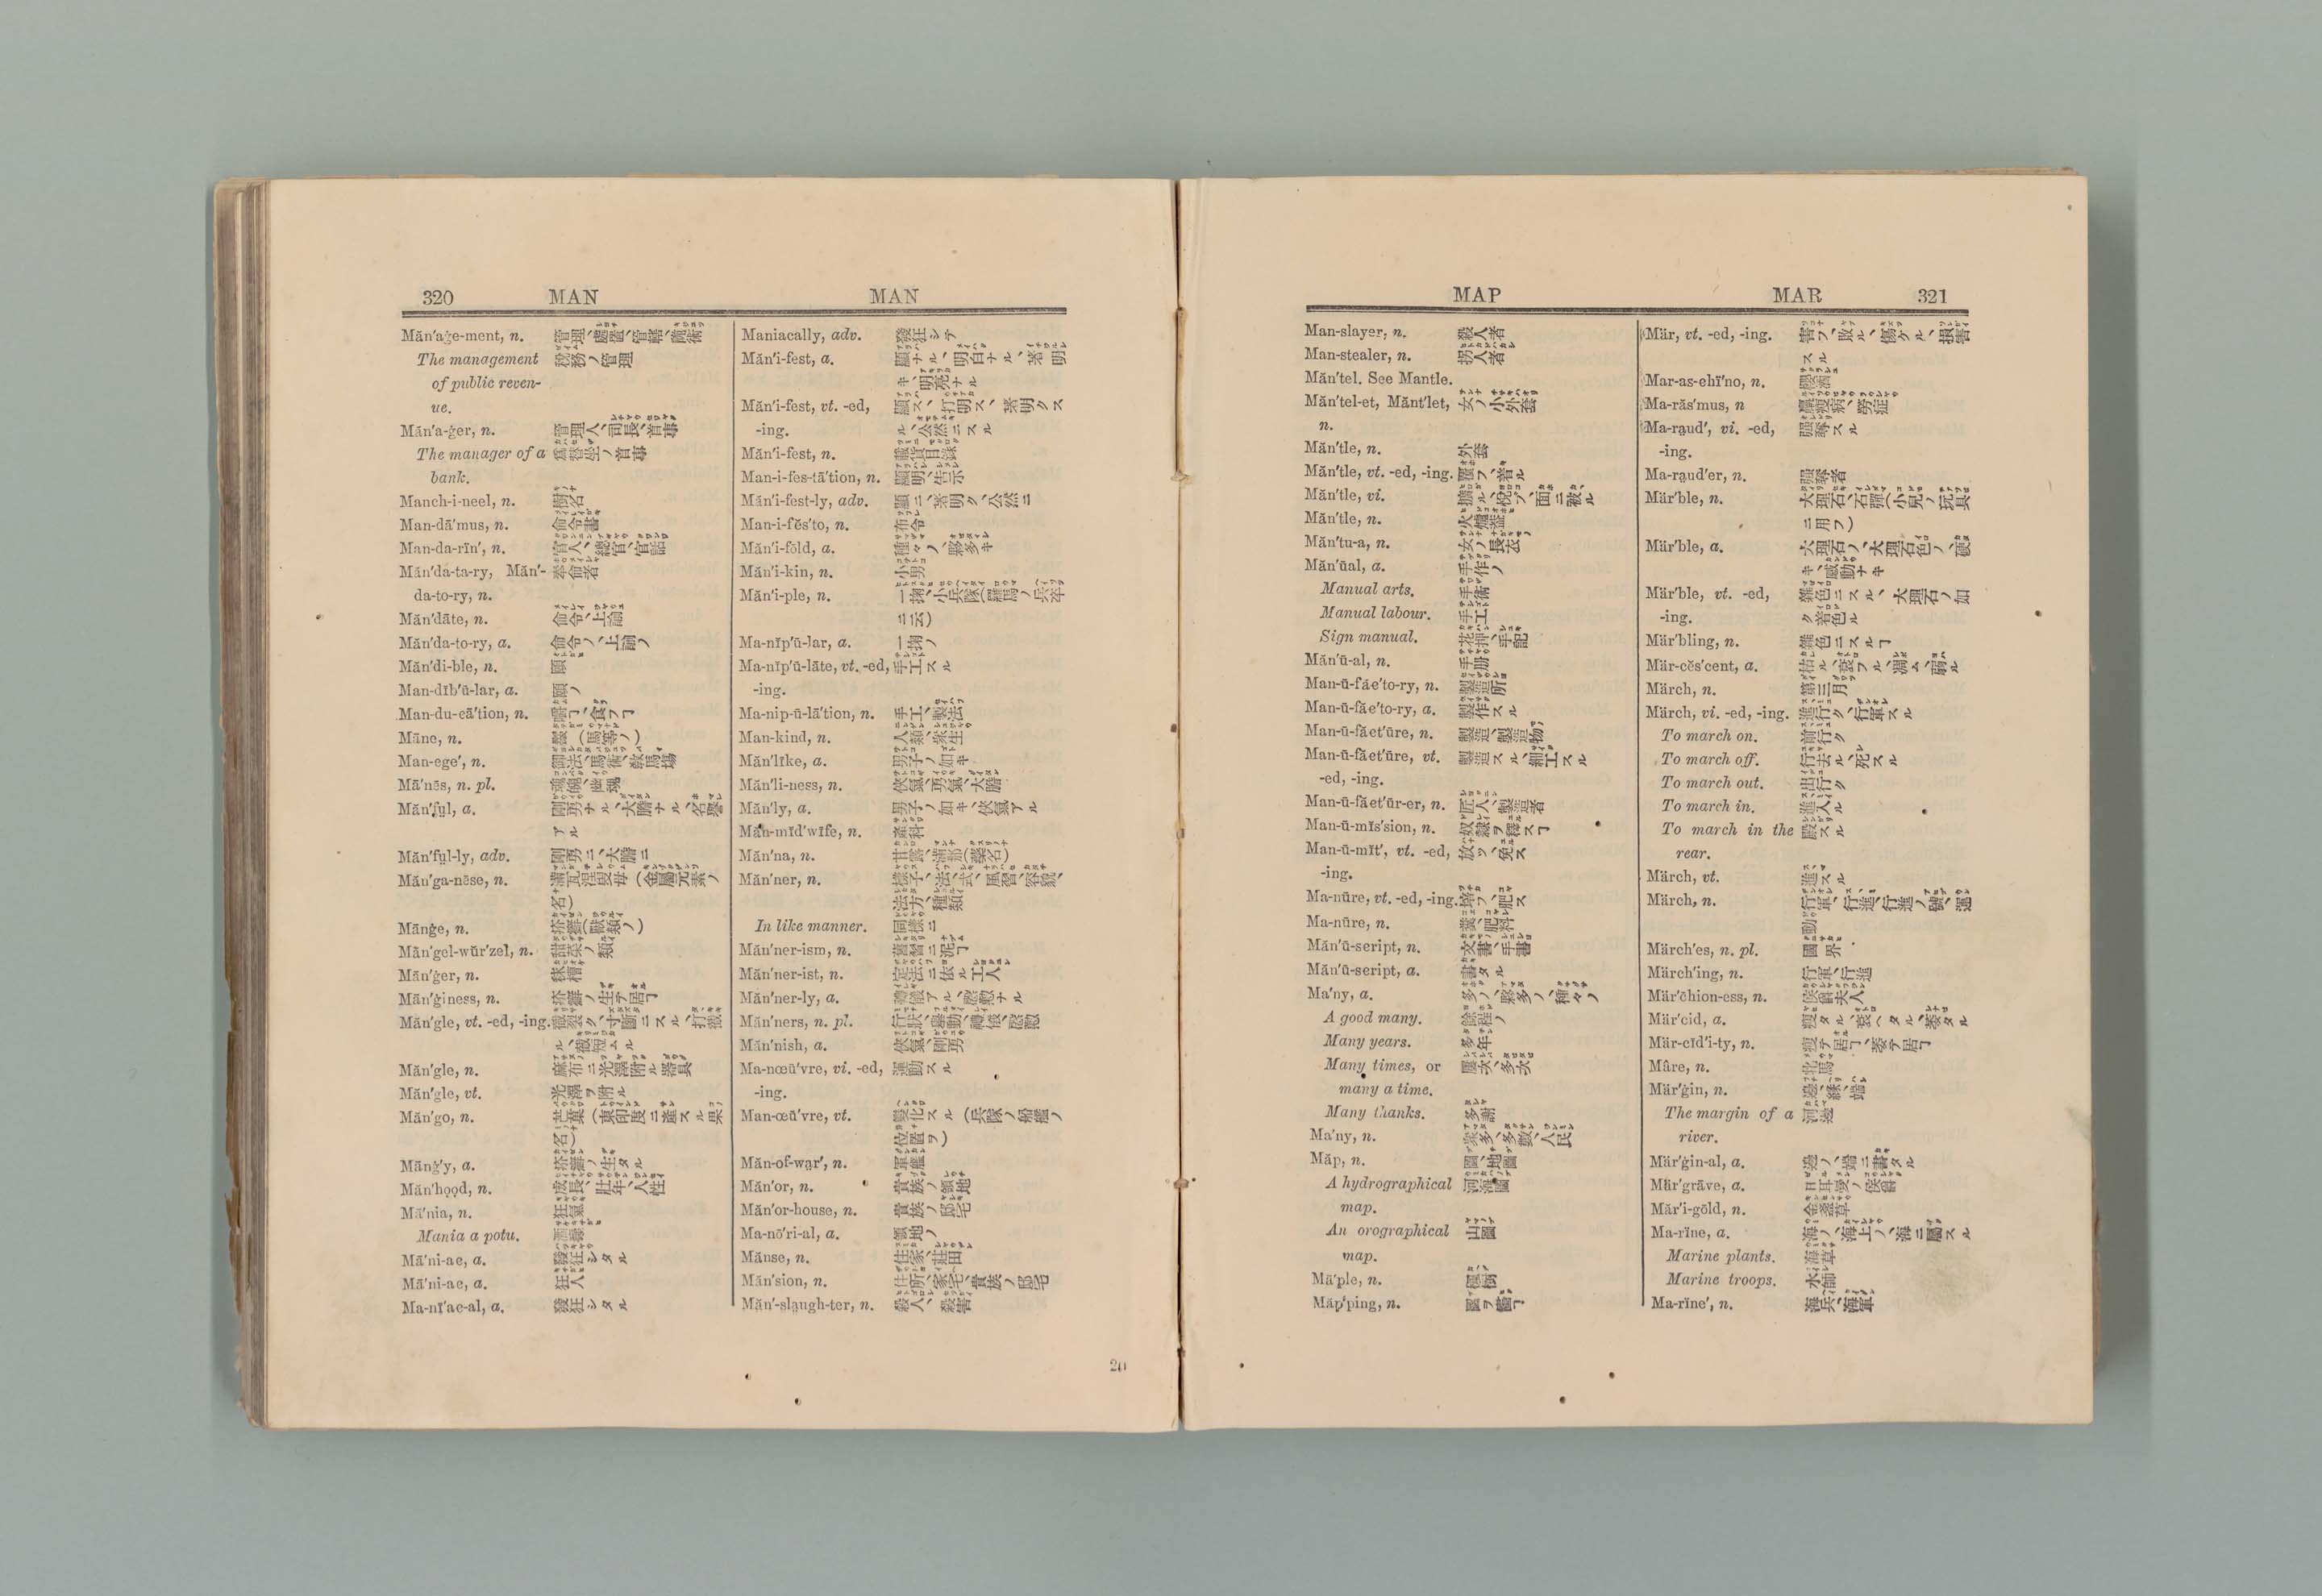 320 MAN MAN
Măn′aġe-ment, n. 管理、處置、官轄、
The management 税務ノ管理
of public reven-
ue.
Măn′a-ġer, n. 管理人、司長、首事
The manager of a 爲替坐ノ首事
bank.
Manch-i-neel, n. 樹名
Man-dā′mus, n. 命令書
Man-da-rïn′, n. 官人、總官、官話
Măn′da-ta-ry, Măn′- 奉命者
da-to-ry, n.
Măn′dāte, n. 命令、上諭
Măn′da-to-ry, a. 命令ノ、上諭ノ
Măn′di-ble, n.
Man-dĭb′ū-lar, a.
Man-du-cā′tion, n. 嚼ヿ、食フヿ
Māne, n. 鬣(馬等ノ)
Man-ege′, n. 御法、馬術、敎馬場
Mā′nēs, n. pl. 魂魄、幽魂
Măn′fụl, a. 剛勇ナル、大膽ナル、名譽
アル
Măn′fụl-ly, adv. 剛勇ニ、大膽ニ
Măn′ga-nēse, n. 滿瓦涅叟母(金屬元素ノ
名)
Mānġe, n. 疥癬(獸類ノ)
Măn′gel-wũr′zel, n. 甜菜ノ類
Mān′ġer, n. 秣槽
Mān′ġiness, n. 疥癬ノ生テ居ヿ
Măn′gle, vt. -ed, -ing. 裂ク、寸斷ニスル、打
ル、短ムル
Măn′gle, n. 麻布ニ光澤附ル器具
Măn′gle, vt. 光澤ヲ附ル
Măn′go, n. 芒菓(東印度ニ產スル果
名)
Mānġ′y, a. 疥癬ノ生タル
Măn′họọd, n. 成長、壯年、人性
Mā′nia, n. 狂氣
Mania a potu.
Mā′ni-ac, a. 發狂シタル
Mā′ni-ac, a. 狂人
Ma-nī′ac-al, a. 發狂シタル
Maniacally, adv. 發狂シテ
Măn′i-fest, a. 顯ナル、明白ナル、著明
キ、明亮ナル
Măn′i-fest, vt. -ed, 顯ス、打明ス、著明クス
-ing. ル、公然ニスル
Măn′i-fest, n. 載貨目錄
Man-i-fes-tā′tion, n. 顯明、告示
Măn′i-fest-ly, adv. 顯ニ、著明ク、公然ニ
Man-i-fĕs′to, n. 布令
Măn′i-fōld, a. 種々ノ、夥多キ
Măn′i-kin, n. 小男
Măn′i-ple, n. 一掬、小兵隊(羅馬ノ兵卒
ニ云)
Ma-nĭp′ū-lar, a. 一掬ノ
Ma-nĭp′ū-lāte, vt. -ed, 手工スル
-ing.
Ma-nip-ū-lā′tion, n. 手工、製法
Man-kind, n. 人類、衆生
Măn′līke, a. 男子ノ如キ
Măn′li-ness, n. 俠氣、勇氣、大膽
Măn′ly, a. 男子ノ如キ、俠氣アル
Măn-mĭd′wīfe, n. 產科
Măn′na, n. 甘露、滿那(藥名)
Măn′ner, n. 樣子、法、式、風習、容貌、
法方、種類
In like manner. 同樣ニ
Măn′ner-ism, n. 舊習ニ泥ヿ
Măn′ner-ist, n. 定法ニ依ル工人
Măn′ner-ly, a. 禮儀アル、慇懃ナル
Măn′ners, n. pl. 行狀、擧動、禮儀、慇懃
Măn′nish, a. 俠氣、剛勇
Ma-nœū′vre, vi. -ed, 運動スル
-ing.
Man-œū′vre, vt. 變化スル(兵隊ノ船艦ノ
位置ヲ)
Măn-of-wạr′, n. 軍艦
Măn′or, n. 貴族ノ領地
Măn′or-house, n. 貴族ノ邸宅
Ma-nō′ri-al, a. 領地ノ
Mănse, n. 住家、莊田
Măn′sion, n. 住所、家宅、貴族ノ邸宅
Măn′-slạugh-ter, n. 殺人、殺害
20
MAP MAR 321
Man-slayer, n. 殺人者
Man-stealer, n. 拐人者
Măn′tel. See Mantle.
Măn′tel-et, Mănt′let, 女ノ小外套
n.
Măn′tle, n. 外套
Măn′tle, vt. -ed, -ing. 覆フ、著ル
Măn′tle, vi. 擴ル、悅ブ、面ニ被ル
Măn′tle, n. 火爐
Măn′tu-a, n. 女ノ長衣
Măn′ūal, a. 手作ノ
Manual arts. 手術
Manual labour. 手工
Sign manual. 花押、手記
Măn′ū-al, n. 手册
Man-ū-făc′to-ry, n. 製造所
Man-ū-făc′to-ry, a. 製作スル
Man-ū-făct′ūre, n. 製造、製造物
Man-ū-făct′ūre, vt. 製造スル、細工スル
-ed, -ing.
Man-ū-făct′ūr-er, n. 匠人、製造者
Man-ū-mĭs′sion, n. 奴隸ヲ釋スヿ
Man-ū-mĭt′, vt. -ed, 放ッ、免ス
-ing.
Ma-nūre, vt. -ed, -ing. 培フ、肥ス
Ma-nūre, n. 糞、肥料
Măn′ū-script, n. 文書、手書
Măn′ū-script, a. 書タル
Ma′ny, a. 多ノ、夥多ノ、種々ノ
A good many. 餘程ノ
Many years. 多年
Many times, or 屢次、多次
many a time.
Many thanks. 多謝
Ma′ny, n. 衆多、多數、人民
Măp, n. 圖、地圖
A hydrographical 河海圖
map.
An orographical 山圖
map.
Mā′ple, n. 楓樹
Măp′ping, n. 圖ヲヿ
Mär, vt. -ed, -ing. 害フ、敗ル、傷ケル、損害
スル
Mar-as-chï′no, n. 櫻酒
Ma-răs′mus, n 病、勞症
Ma-rạud′, vi. -ed, 强奪スル
-ing.
Ma-rạud′er, n. 强奪者
Mär′ble, n. 大理石、石彈(小兒ノ玩具
ニ用フ)
Mär′ble, a. 大理石ノ、大理石色ノ、硬
キ、感動ナキ
Mär′ble, vt. -ed, 雜色ニスル、大理石ノ如
-ing. ク着色ル
Mär′bling, n. 雜色ニスルヿ
Mär-cĕs′cent, a. 枯ル、衰フル、凋ム、弱ル
Märch, n. 第三月
Märch, vi. -ed, -ing. 進行ク、行軍スル
To march on. 前行ク
To march off. 行去ル、死スル
To march out. 出行ク
To march in. 進入ル
To march in the 殿スル
rear.
Märch, vt. 進スル
Märch, n. 行軍、行進、行進ノ號、運
動
Märch′es, n. pl. 國界
Märch′ing, n. 行軍、行進
Mär′chion-ess, n. 侯爵夫人
Mär′cid, a. 瘦タル、衰ヘタル、萎タル
Mär-cĭd′i-ty, n. 瘦テ居ヿ、萎テ居ヿ
Mâre, n. 牝馬
Mär′ġin, n. 邊、緣、端
The margin of a 河邊
river.
Mär′ġin-al, a. 邊ノ、端ニ書タル
Mär′grāve, a. 日耳曼ノ侯爵
Măr′i-gōld, n. 金盞草
Ma-rïne, a. 海ノ、海上ノ、海ニ屬スル
Marine plants. 海草
Marine troops. 水師
Ma-rïne′, n. 海兵、海軍